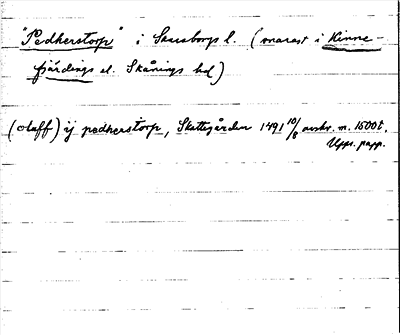 "Pedherstorp" i Skarsborgs l. (snarast i Kinne-
fjärdings el. Skånings hd)
(olaff) ij pedherstorp, Skattegården 1491 10/8 avskr. m. 1500t.
Upps. papp.